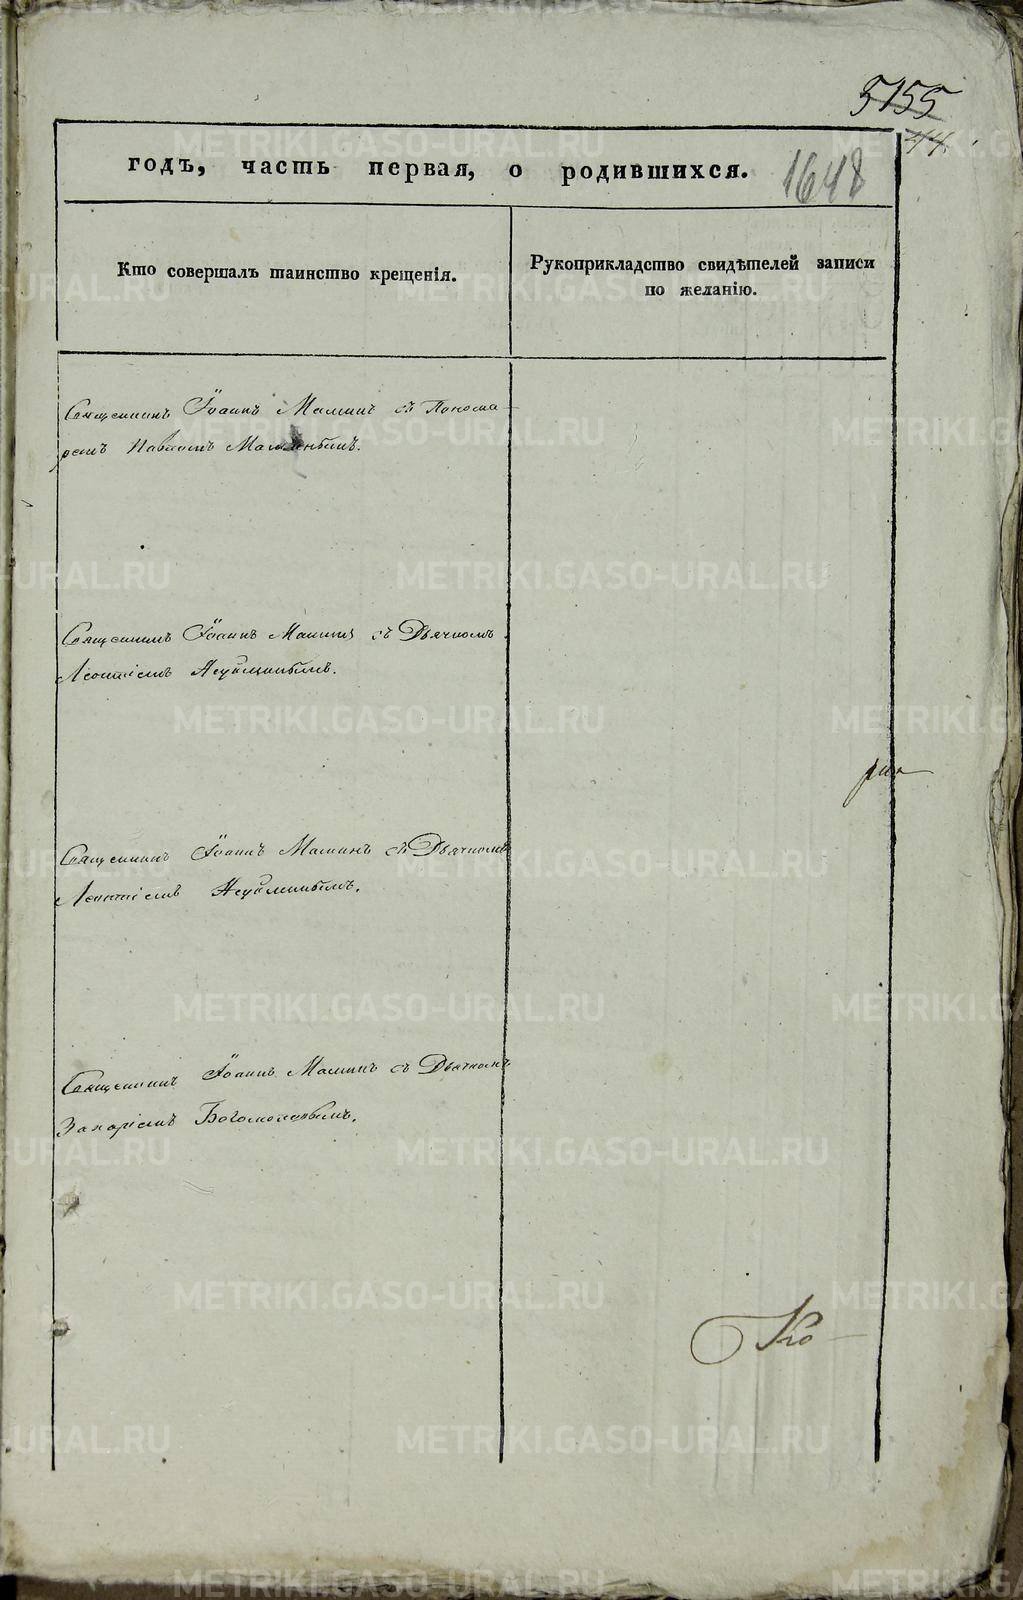 5155
44.
годъ, часть первая, о родившихся.
1648
Кто совершалъ таинство крещенія.
Рукоприкладство свидѣтелей записи
по желанію.
Священникъ Іоаннъ Маминъ съ Понома-
ремъ Павломъ
Священникъ Іоаннъ Маминъ съ Дьячкомъ
Леонтіемъ
Священникъ Іоаннъ Маминъ съ Дьячкомъ
Леонтіемъ
Священникъ Іоаннъ Маминъ съ Дьячкомъ
Захаріемъ Богомоловымъ.
METRIKI.GASO-URAL.RU